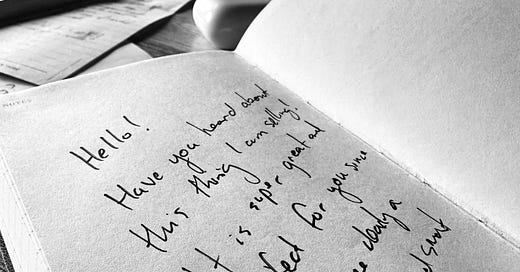 NOTES
Hello!
Have you heard about
this thing I am selling!
It is super great and
for you since
a